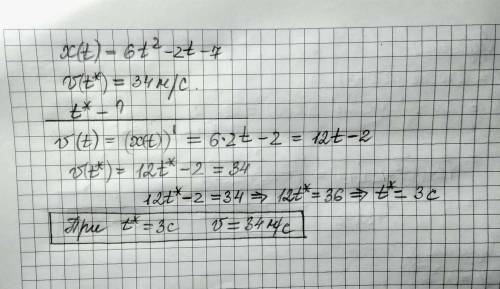 x(t) = 6t² - 2t - 7
v(t*) = 34 м/с.
t* - ?
v(t) = (x(t))' = 6·2t - 2 = 12t - 2
v(t*) = 12t* - 2 = 34
12t* - 2 = 34 ⇒ 12t* = 36 ⇒ t* = 3с
При t* = 3с v = 34 м/с